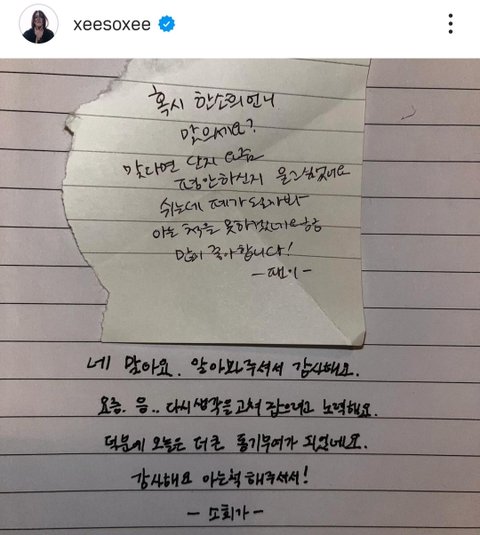 xeesoxee
혹시 한소희언니
맞으세요?
맞다면 단지 요즘
평안하신지 묻고싶었어요
쉬는데 폐가 될까봐
아는 척을 못하겠네요ㅎㅎ
많이 좋아합니다!
-팬이-
네 맞아요. 알아봐주셔서 감사해요.
요즘. 음.. 다시 생각을 고쳐 잡으려고 노력해요.
덕분에 오늘은 더 큰 동기부여가 되었네요.
감사해요 아는척 해주셔서!
- 소희가 -